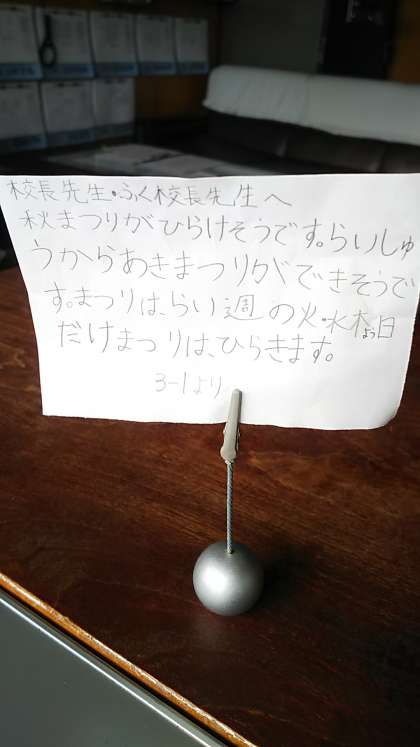 校長先生・ふく校長先生へ
秋まつりがひらけそうです。らいしゅ
うからあきまつりができそうで
す。まつりは、らい週の火・水木よう日
だけまつりは、ひらきます。
3-1より